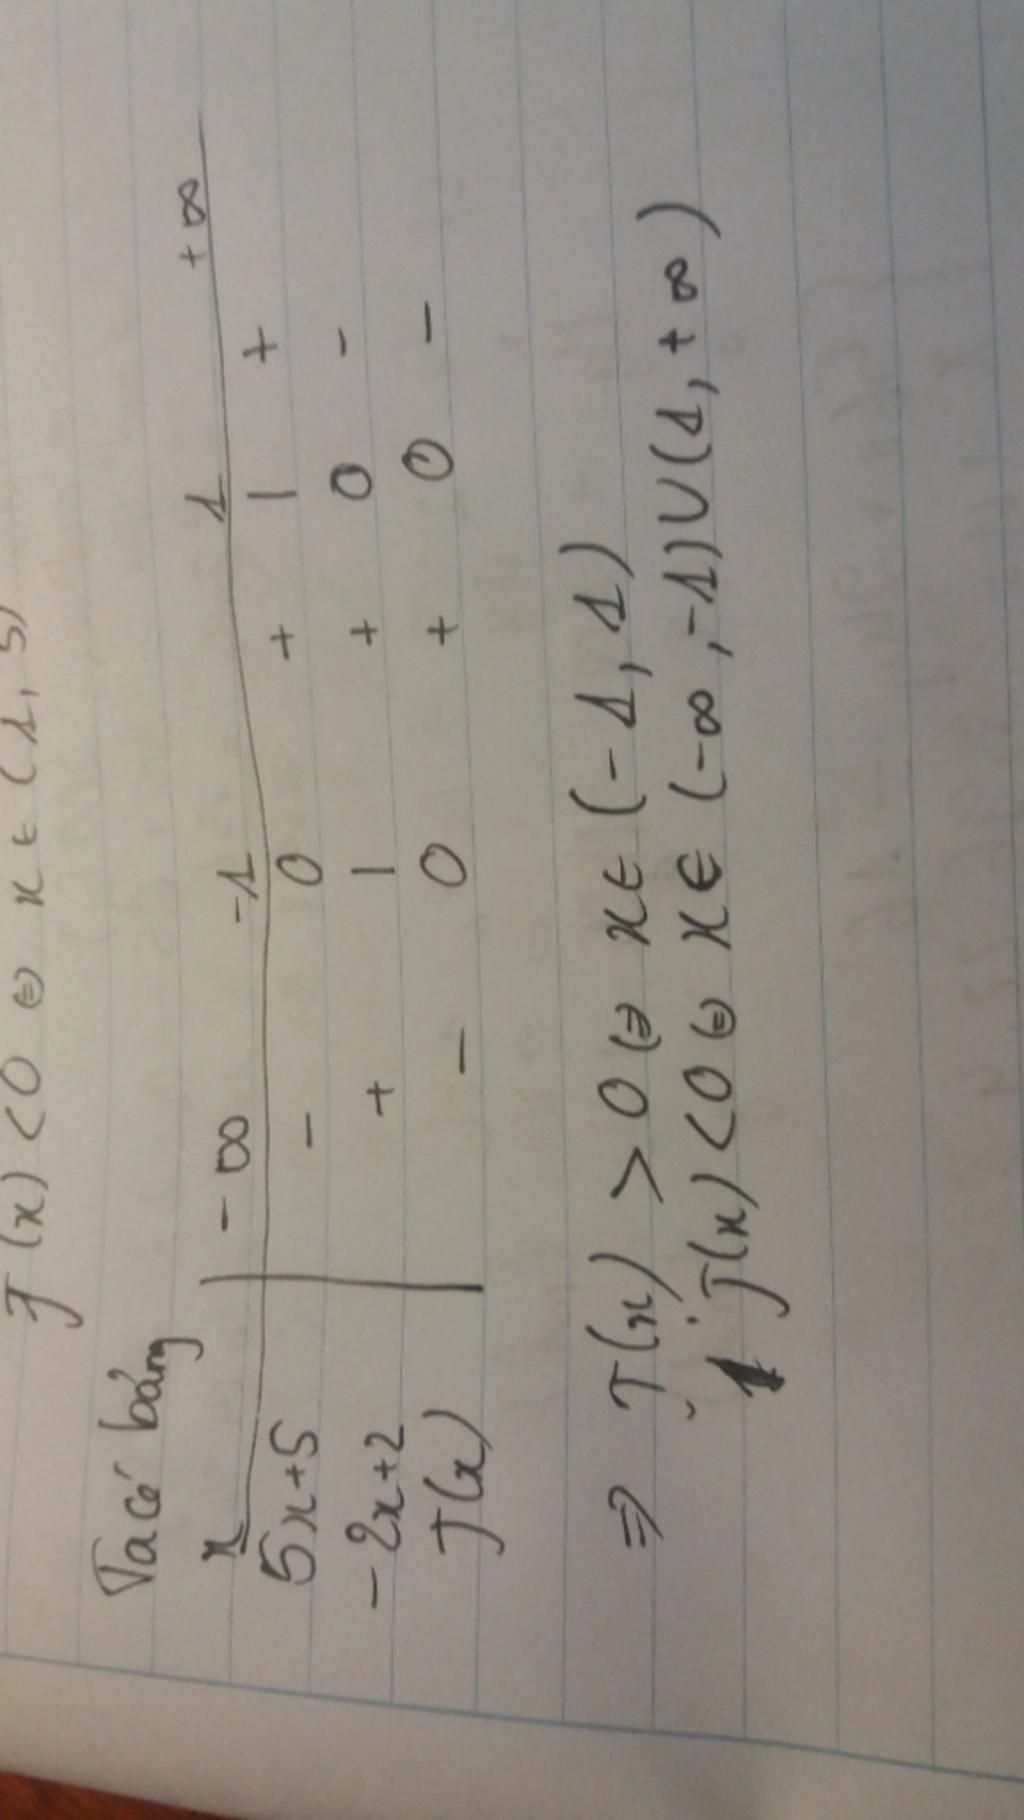 f(x) < 0 ⇔ x ∈ (1, 5)
Ta có bảng
x -∞ -1 1 +∞
5x+5 - 0 + | +
-2x+2 + | + 0 -
f(x) - 0 + 0 -
⇒ f(x) > 0 ⇔ x ∈ (-1, 1)
f(x) < 0 ⇔ x ∈ (-∞, -1) ∪ (1, +∞)